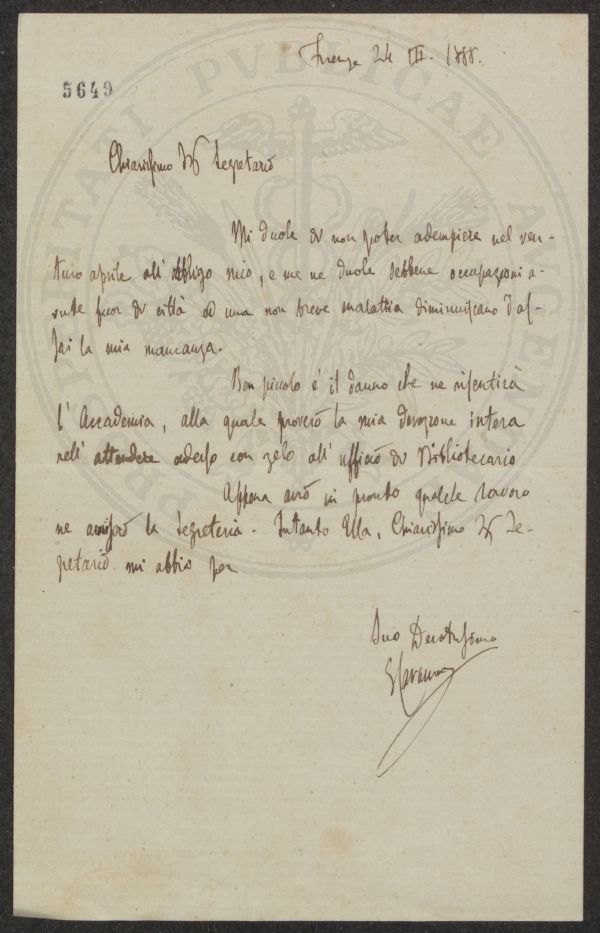 Firenze 24 III. 1888.
5649
Chiarissimo Sig Segretario
Mi duole di non poter adempiere nel ven-
turo aprile all' obbligo mio, e me ne duole sebbene occupazioni a-
vute fuor di città ed una non breve malattia diminuiscano d'as-
sai la mia mancanza.
Ben piccolo è il danno che ne risentirà
l'Accademia, alla quale proverò la mia devozione intera
nell' attendere adesso con zelo all' ufficio di Bibliotecario
Appena avrò in pronto qualche lavoro
ne avviserò la Segreteria. Intanto Ella, Chiarissimo Sig Se-
gretario mi abbia per
Suo Devotissimo
PROSPERITATI PVBLICAE AVGENDAE